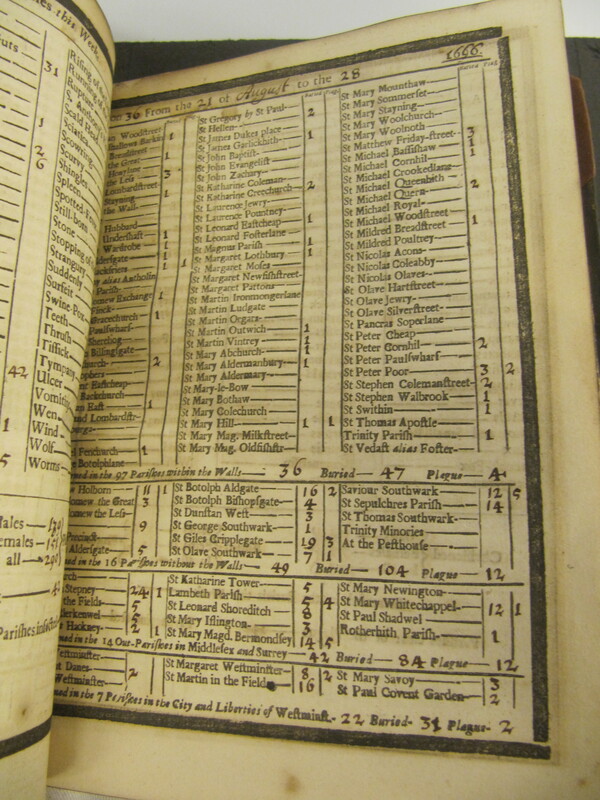 es this Week
uts
Rising of
Running of
Rupture
S. Anthony
Scald Head
Sciatica
Scowring
Scurvy
Shingles
Spleen
Spotted
Still-born
Stone
Stopping of
Strangury
Suddenly
Surfeit
Swine-Pox
Teeth
Thrush
Tissick
Tympany
Ulcer
Vomiting
Wen
Wind
Wolf
Worms
31
1
2
6
42
1
5
ales
emales
all
Parishes
36 From the 21 of August to the 28
1666
Buried Plag
Woodstreet 1
Breadstreet 1
the Great 1
the Less 3
Lombardstreet
Staynings 1
the Wall
Hubbard
Undershaft 1
Wardrobe 1
dersgate 1
ckfriers 1 1
alias Antholins
Parish
new Exchange 1
Finck
Gracechurch 1
Paulswharf
Sherehog
Billingsgate
church 2
Eastcheap
Backchurch
East 1
Lombardstr
Fenchurch 1
Botolphlane
St Gregory by St Paul 2
St Hellen
St James Dukes place 1
St James Garlickhith
St John Baptist
St John Evangelist
St John Zachary
St Katharine Coleman
St Katharine Creechurch 2
St Laurence Jewry
St Laurence Pountney
St Leonard Eastcheap 1
St Leonard Fosterlane
St Magnus Parish 1
St Margaret Lothbury 1
St Margaret Moses 1
St Margaret Newfishstreet
St Margaret Pattons
St Martin Ironmongerlane
St Martin Ludgate
St Martin Orgars
St Martin Outwich 1
St Martin Vintrey 1
St Mary Abchurch 1
St Mary Aldermanbury 1
St Mary Aldermary
St Mary-le-Bow
St Mary Bothaw
St Mary Colechurch
St Mary Hill 1 1
St Mary Mag. Milkstreet
St Mary Mag. Oldfishstr
St Mary Mounthaw
St Mary Sommerset
St Mary Stayning
St Mary Woolchurch
St Mary Woolnoth
St Matthew Friday-street 3
St Michael Bassishaw 1
St Michael Cornhil 1
St Michael Crookedlane
St Michael Queenhith 2
St Michael Quern
St Michael Royal
St Michael Woodstreet 1
St Mildred Breadstreet
St Mildred Poultney
St Nicolas Acons
St Nicolas Coleabby
St Nicolas Olaves
St Olave Hartstreet
St Olave Jewry
St Olave Silverstreet
St Pancras Soperlane
St Peter Cheap
St Peter Cornhil 2
St Peter Paulswharf
St Peter Poor 3 2
St Stephen Colemanstreet 2
St Stephen Walbrook 1
St Swithin 1
St Thomas Apostle
Trinity Parish 1
St Vedast alias Foster
in the 97 Parishes within the Walls 36 Buried 47 Plague 4
Holborn 11 1
lomew the Great 3
lomew the Less
9
Aldersgate 5
St Botolph Aldgate 16 2
St Botolph Bishopsgate 4
St Dunstan West 3
St George Southwark 1
St Giles Cripplegate 19 3
St Olave Southwark 7 1
Saviour Southwark 12 5
St Sepulchres Parish 14
St Thomas Southwark
Trinity Minories
At the Pesthouse
in the 16 Parishes without the Walls 49 Buried 104 Plague 12
Stepney 24 1
the Fields 5
lerkenwel 5
Hackney 2 1
St Katharine Tower 5
Lambeth Parish 5 4
St Leonard Shoreditch 8
St Mary Islington 3
St Mary Magd. Bermondsey 14 5
St Mary Newington
St Mary Whitechappel 12 1
St Paul Shadwel
Rotherhith Parish 1
in the 14 Out-Parishes in Middlesex and Surrey 42 Buried 84 Plague 12
Danes 2
Westminster
St Margaret Westminster 8 2
St Martin in the Fields 16
St Mary Savoy 3
St Paul Covent Garden 2
in the 7 Parishes in the City and Liberties of Westminst. 22 Buried 31 Plague 2